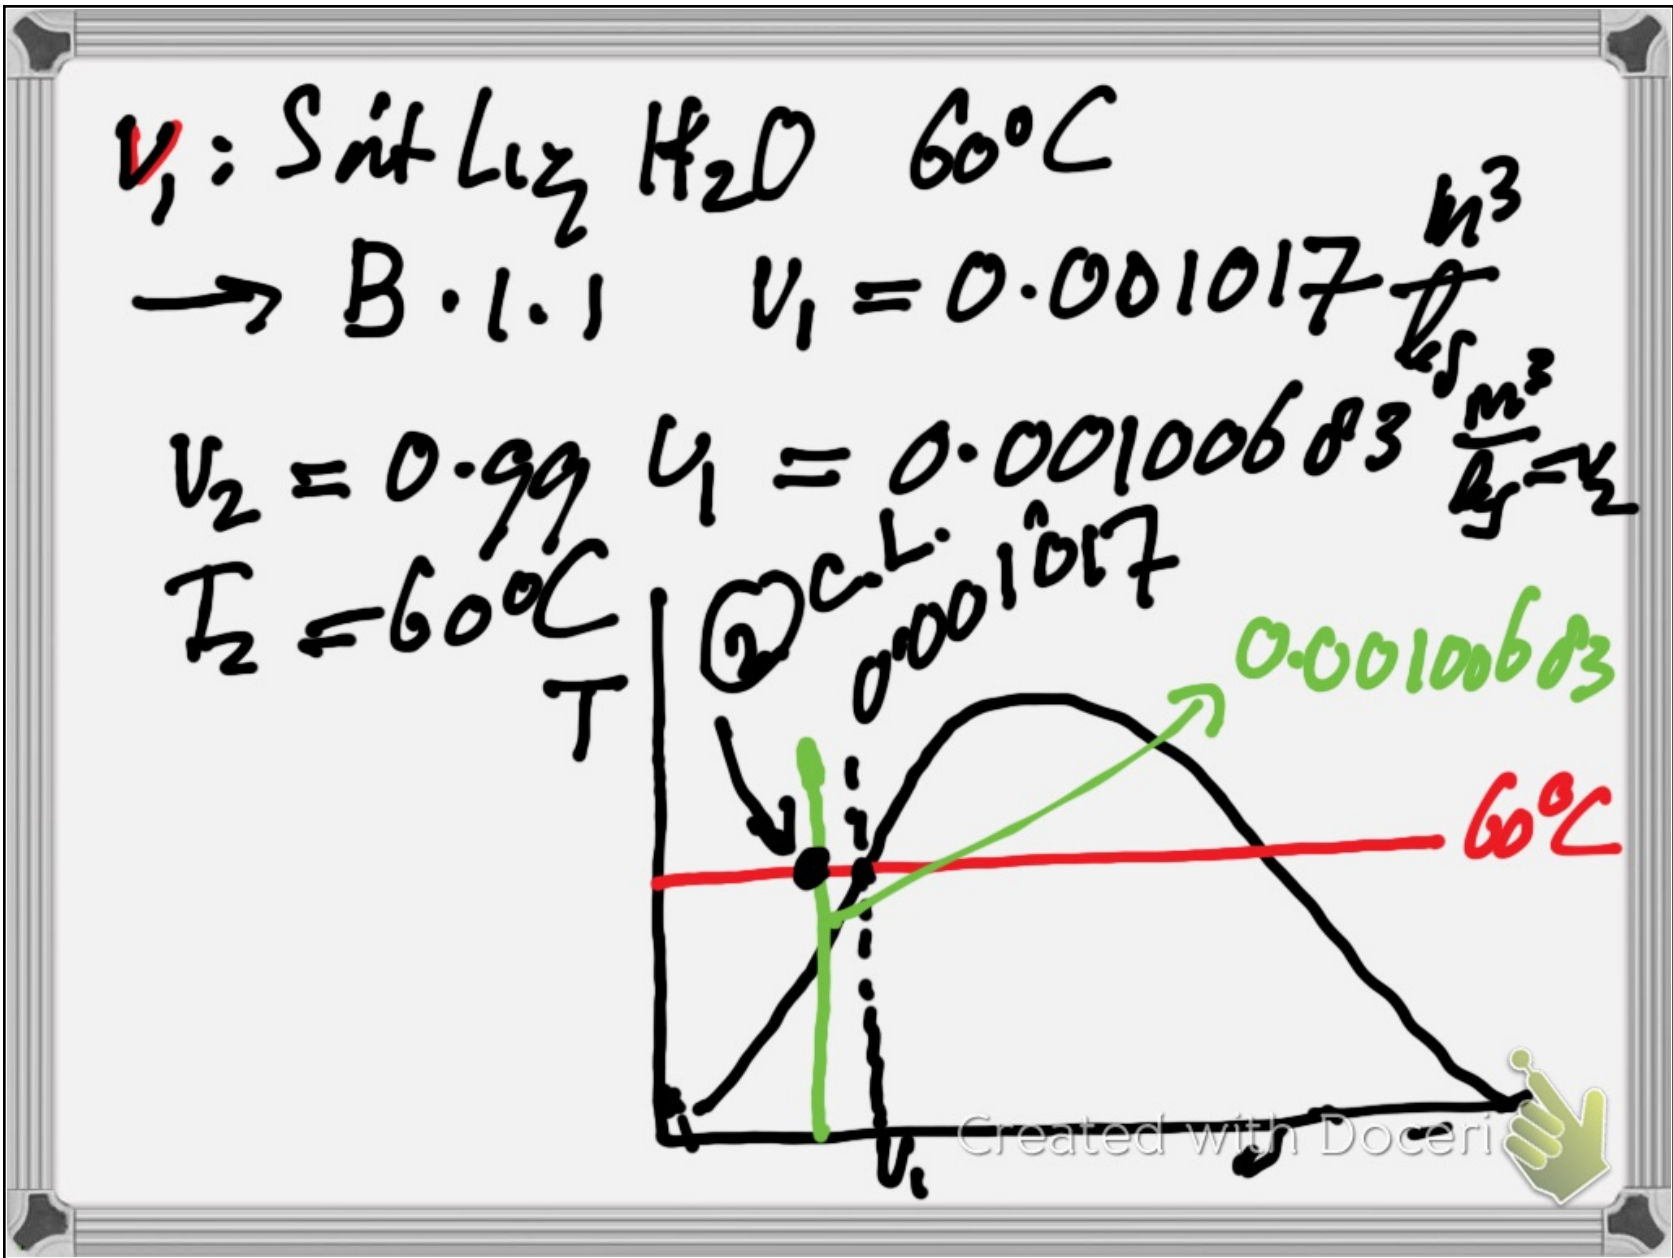 v₁: Sat Liq H₂O 60°C
→ B.1.1 v₁ = 0.001017 m³/kg
v₂ = 0.99 v₁ = 0.00100683 m³/kg = v₂
T₂ = 60°C
② C.L.
0.001017
0.00100683
T
60°C
v₁
Created with Doceri